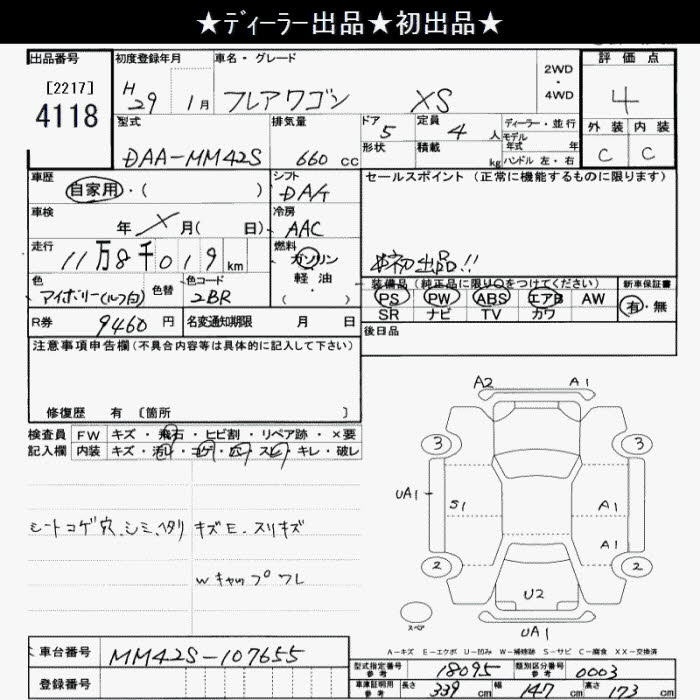 ★ディーラー出品★初出品★
出品番号 初度登録年月 車名・グレード 2WD ・ 4WD 評価点
[2217] 4118 H 29 1月 フレアワゴン XS 4
型式 排気量 ドア 5 定員 4 人 ディーラー・並行 外装 内装
モデル
DAA-MM42S 660 cc 形状 積載 kg 年式 年 C C
ハンドル 左・右
車歴 シフト セールスポイント (正常に機能するものに限ります)
自家用・( ) DAA
車検 冷房
年 月( 日) AAC
走行 燃料
11万8千019 km ガソリン 初出品!!
軽油
色 色替 色コード ( ) 装備品 (純正品に限り○をつけてください) 新車保証書
アイボリー(ルーフ白) 2BR PS PW ABS エアB AW 有・無
SR ナビ TV カワ
R券 9460 円 名変通知期限 月 日 後日品
注意事項申告欄(不具合内容等は具体的に記入して下さい)
修復歴 有 〔箇所 〕
検査員 FW キズ・飛石・ヒビ割・リペア跡・×要
記入欄 内装 キズ・汚レ・コゲ・穴・スレ・キレ・破レ
シートコゲ穴、シミ、ヘタリ キズE、スリキズ
Wキャップワレ
A2 A1
3 3
UA1 S1 A1
A1
2 2
U2
スペア UA1
A-キズ E-エクボ U-凹み W-補修跡 S-サビ C-腐食 XX-交換済
車台番号 MM42S-107655
型式指定番号 参考 18095 類別区分番号 参考 0003
登録番号 車庫証明用 参考 長さ 339 cm 幅 147 cm 高さ 173 cm